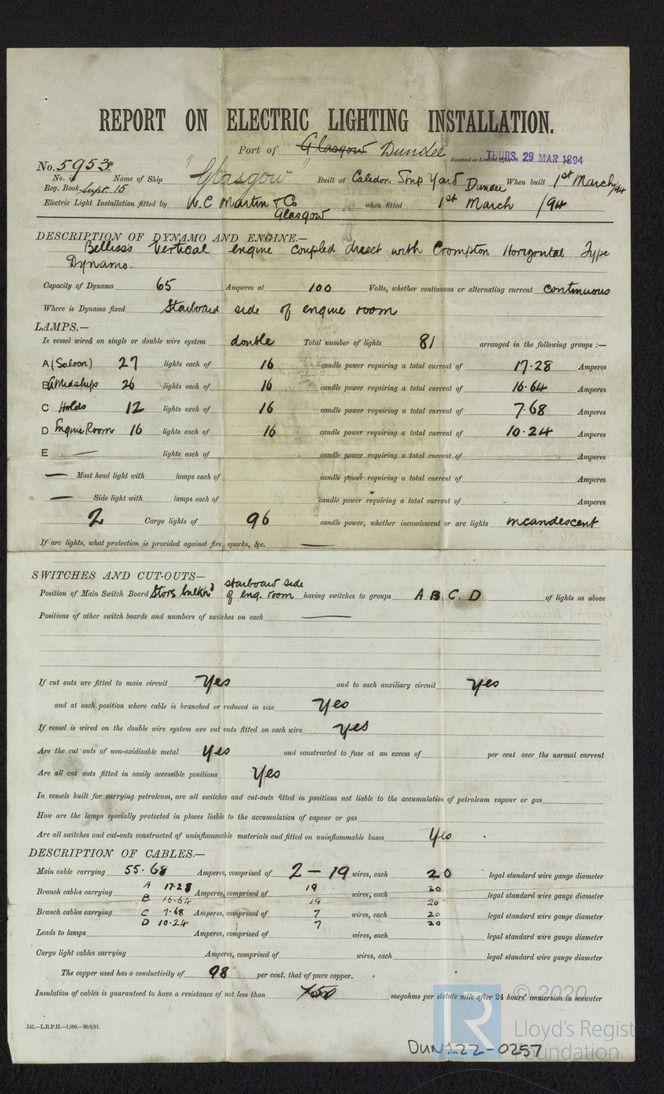 REPORT ON ELECTRIC LIGHTING INSTALLATION.
Port of Glasgow Dundee THURS. 29 MAR 1894
No. 5953
No. in Reg. Book Supt. 15 Name of Ship "Glasgow" Built at Caledon Ship Yard Dundee When built 1st March/94
Electric Light Installation fitted by W.C Martin & Co Glasgow when fitted 1st March /94
DESCRIPTION OF DYNAMO AND ENGINE.—
Belliss's Vertical engine coupled direct with Crompton Horizontal Type
Dynamo.
Capacity of Dynamo 65 Amperes at 100 Volts, whether continuous or alternating current continuous
Where is Dynamo fixed Starboard side of engine room
LAMPS.—
Is vessel wired on single or double wire system double Total number of lights 81 arranged in the following groups :—
A (Saloon) 27 lights each of 16 candle power requiring a total current of 17.28 Amperes
B Amidships 26 lights each of 16 candle power requiring a total current of 16.64 Amperes
C Holds 12 lights each of 16 candle power requiring a total current of 7.68 Amperes
D Engine Room 16 lights each of 16 candle power requiring a total current of 10.24 Amperes
E — lights each of candle power requiring a total current of Amperes
— Mast head light with lamps each of candle power requiring a total current of Amperes
— Side light with lamps each of candle power requiring a total current of Amperes
2 Cargo lights of 96 candle power, whether incandescent or arc lights incandescent
If arc lights, what protection is provided against fire, sparks, &c. —
SWITCHES AND CUT-OUTS—
Position of Main Switch Board Stors bulkhd starboard side of eng. room having switches to groups A B. C. D of lights as above
Positions of other switch boards and numbers of switches on each —
If cut outs are fitted to main circuit Yes and to each auxiliary circuit Yes
and at each position where cable is branched or reduced in size Yes
If vessel is wired on the double wire system are cut outs fitted on each wire Yes
Are the cut outs of non-oxidizable metal Yes and constructed to fuse at an excess of per cent over the normal current
Are all cut outs fitted in easily accessible positions Yes
In vessels built for carrying petroleum, are all switches and cut-outs fitted in positions not liable to the accumulation of petroleum vapour or gas
How are the lamps specially protected in places liable to the accumulation of vapour or gas
Are all switches and cut-outs constructed of uninflammable materials and fitted on uninflammable bases Yes
DESCRIPTION OF CABLES.—
Main cable carrying 55.68 Amperes, comprised of 2 – 19 wires, each 20 legal standard wire gauge diameter
Branch cables carrying A 17.28 Amperes, comprised of 19 wires, each 20 legal standard wire gauge diameter
B 16.64 19 20
Branch cables carrying C 7.68 Amperes, comprised of 7 wires, each 20 legal standard wire gauge diameter
D 10.24 7 20
Leads to lamps Amperes, comprised of wires, each legal standard wire gauge diameter
Cargo light cables carrying Amperes, comprised of wires, each legal standard wire gauge diameter
The copper used has a conductivity of 98 per cent. that of pure copper.
Insulation of cables is guaranteed to have a resistance of not less than megohms per statute mile after 24 hours' immersion in seawater
© 2020
LR
Lloyd's Register
Foundation
DUN122-0257